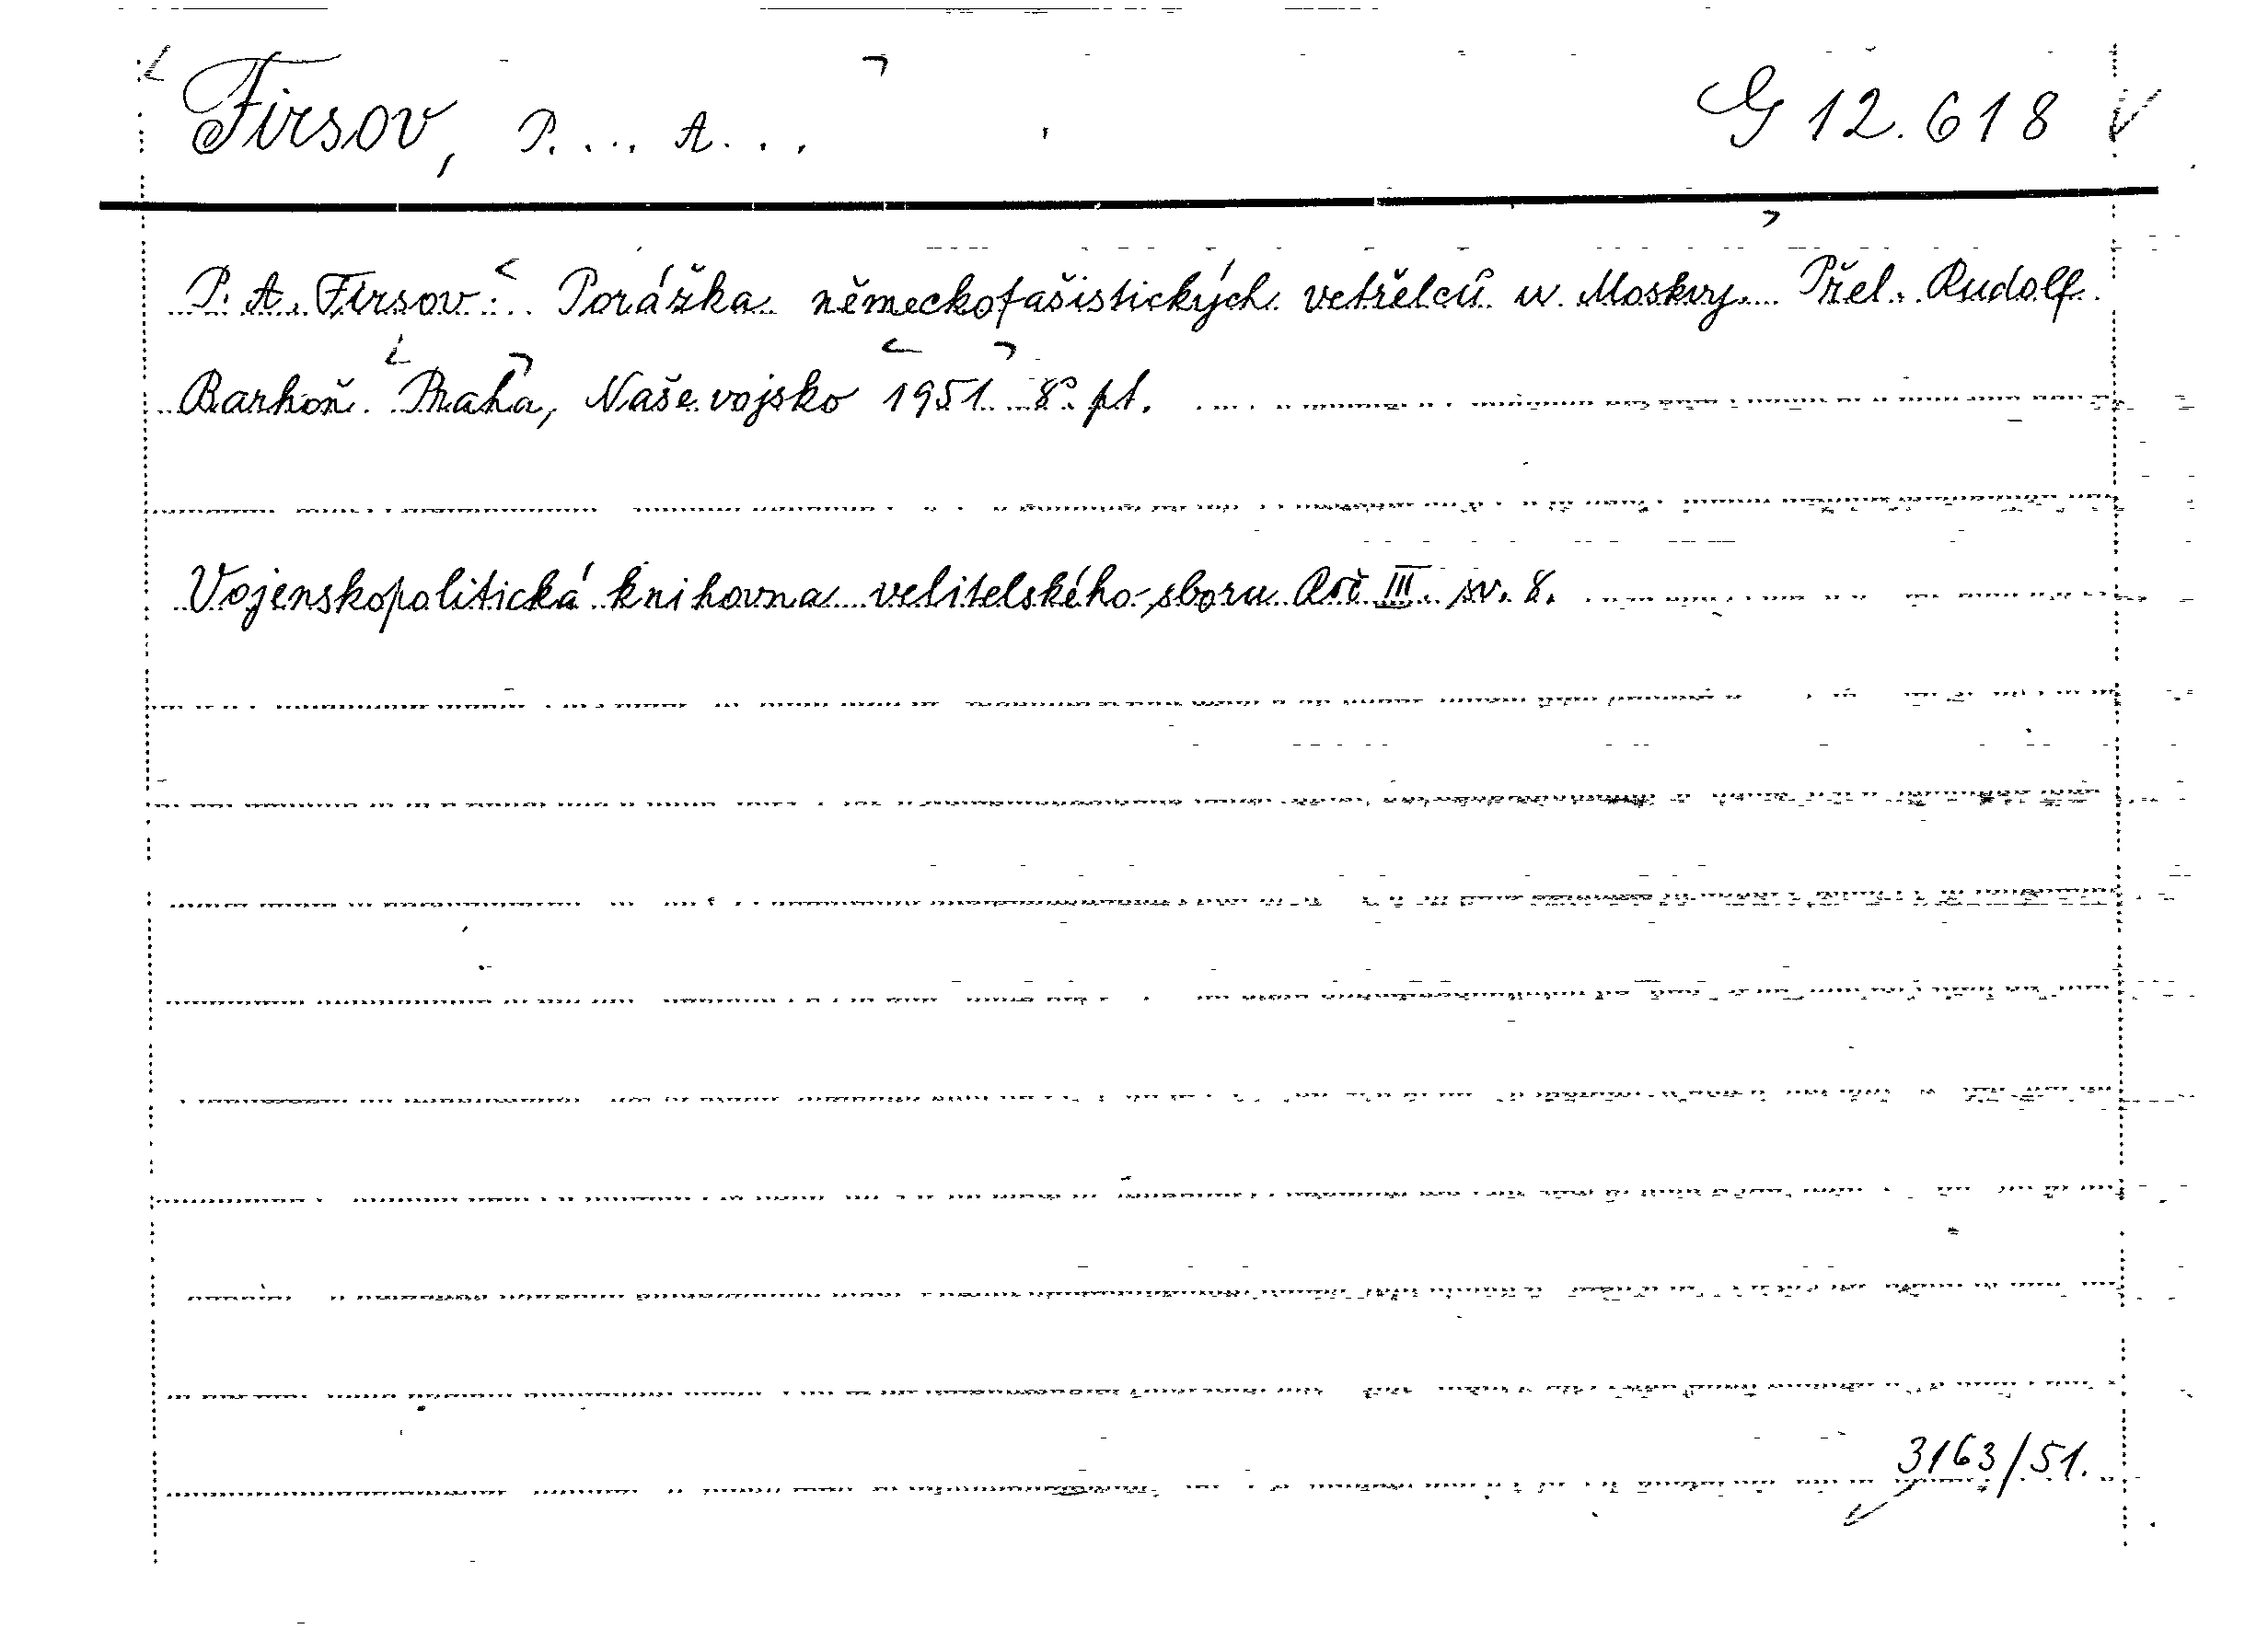 Firsov, P... A...
G 12.618
P. A. Firsov: Porážka německofašistických vetřelců u Moskvy. Přel. Rudolf
Barhoň. Praha, Naše vojsko 1951. 8° pt.
Vojenskopolitická knihovna velitelského sboru Roč III. sv. 8.
3163/51.